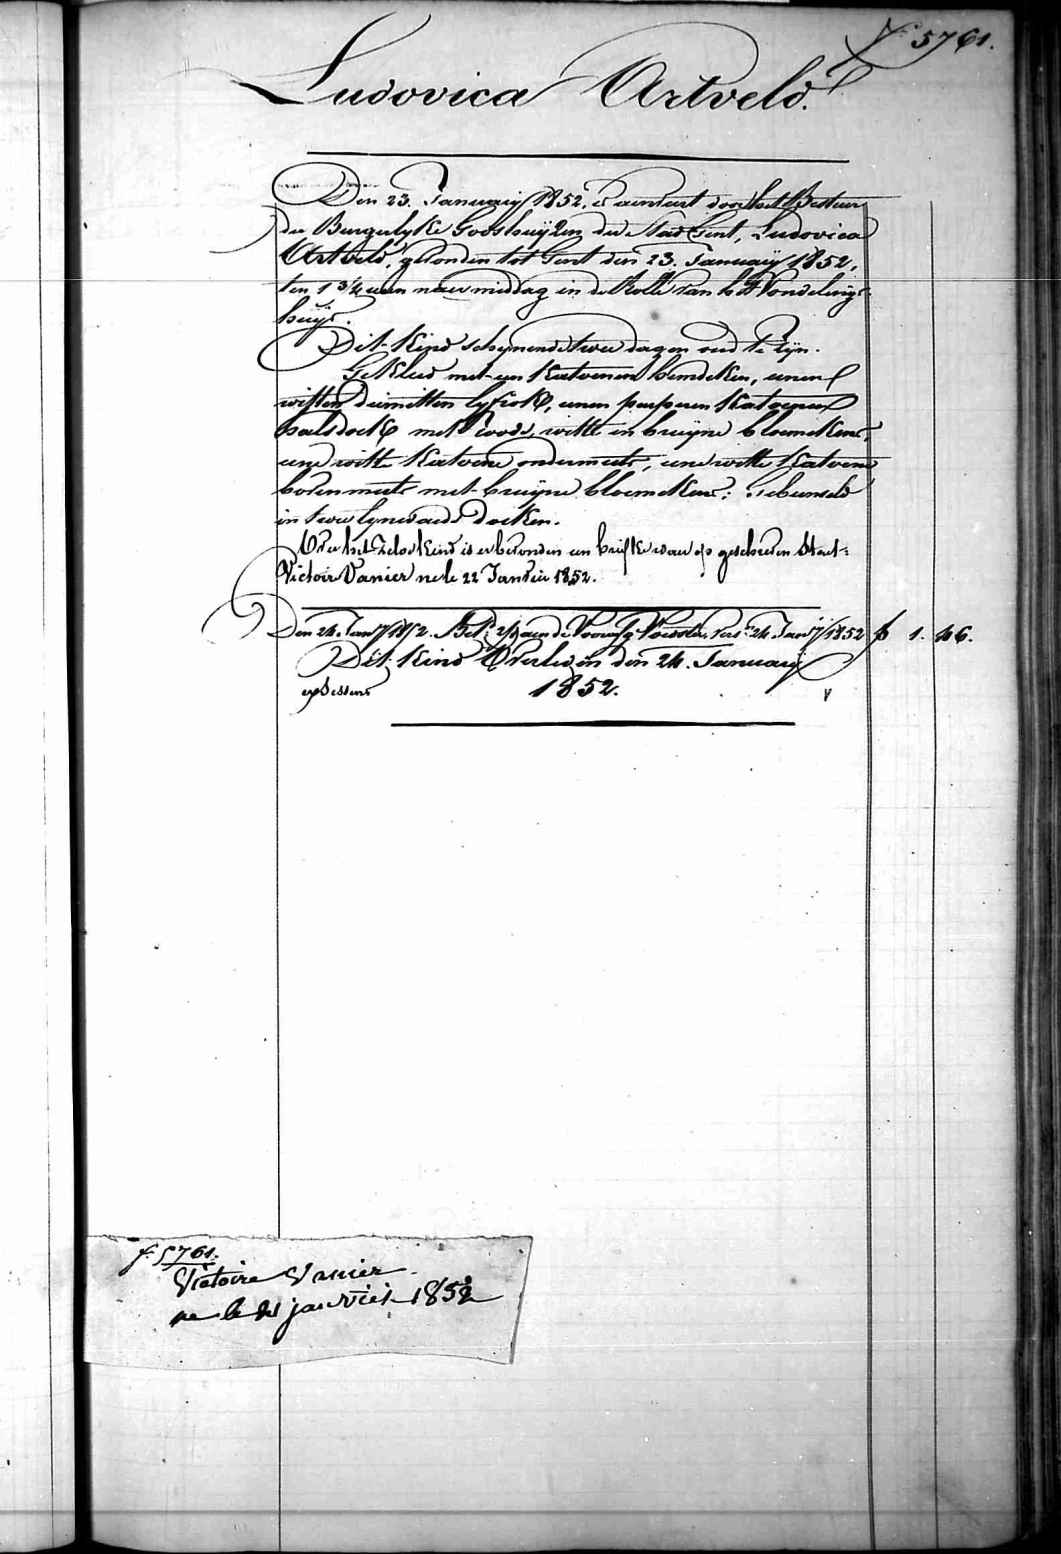 F° 5761.
Ludovica Artveld.
Den 23. January 1852, is aenveirt door het Bestuer
der Burgerlyke Godshuijzen dezer Stad Gent, Ludovica
Artveld, gevonden tot Gent den 23. January 1852,
ten 1 3/4 uren naer middag in de Rolle van het Vondelings-
huijs.
Dit Kind schynende twee dagen oud te Zyn.
Gekleed met een Katoenen hemdeken, eenen
witten dimitten lyfrok, eenen purperen Katoenen
halsdoek met roode, witte en bruyne bloemekens,
eene witte Katoene ondermuts, eene witte Katoene
bovenmuts met bruyne bloemekens: Gebunseld
in twee lynwaede doeken.
Over het Zelve Kind is er bevonden een briefke waer op geschreven Staet:
Victoire Vanier né le 22 Janvier 1852.
Den 24. Jany 1852. Bet. aen de Voorsz Persn 24. Jany 1852 f 1. 46.
Dit Kind Overleden den 24. January
1852.
f° 5761.
Victoire Vanier
né le 21 janvier 1852